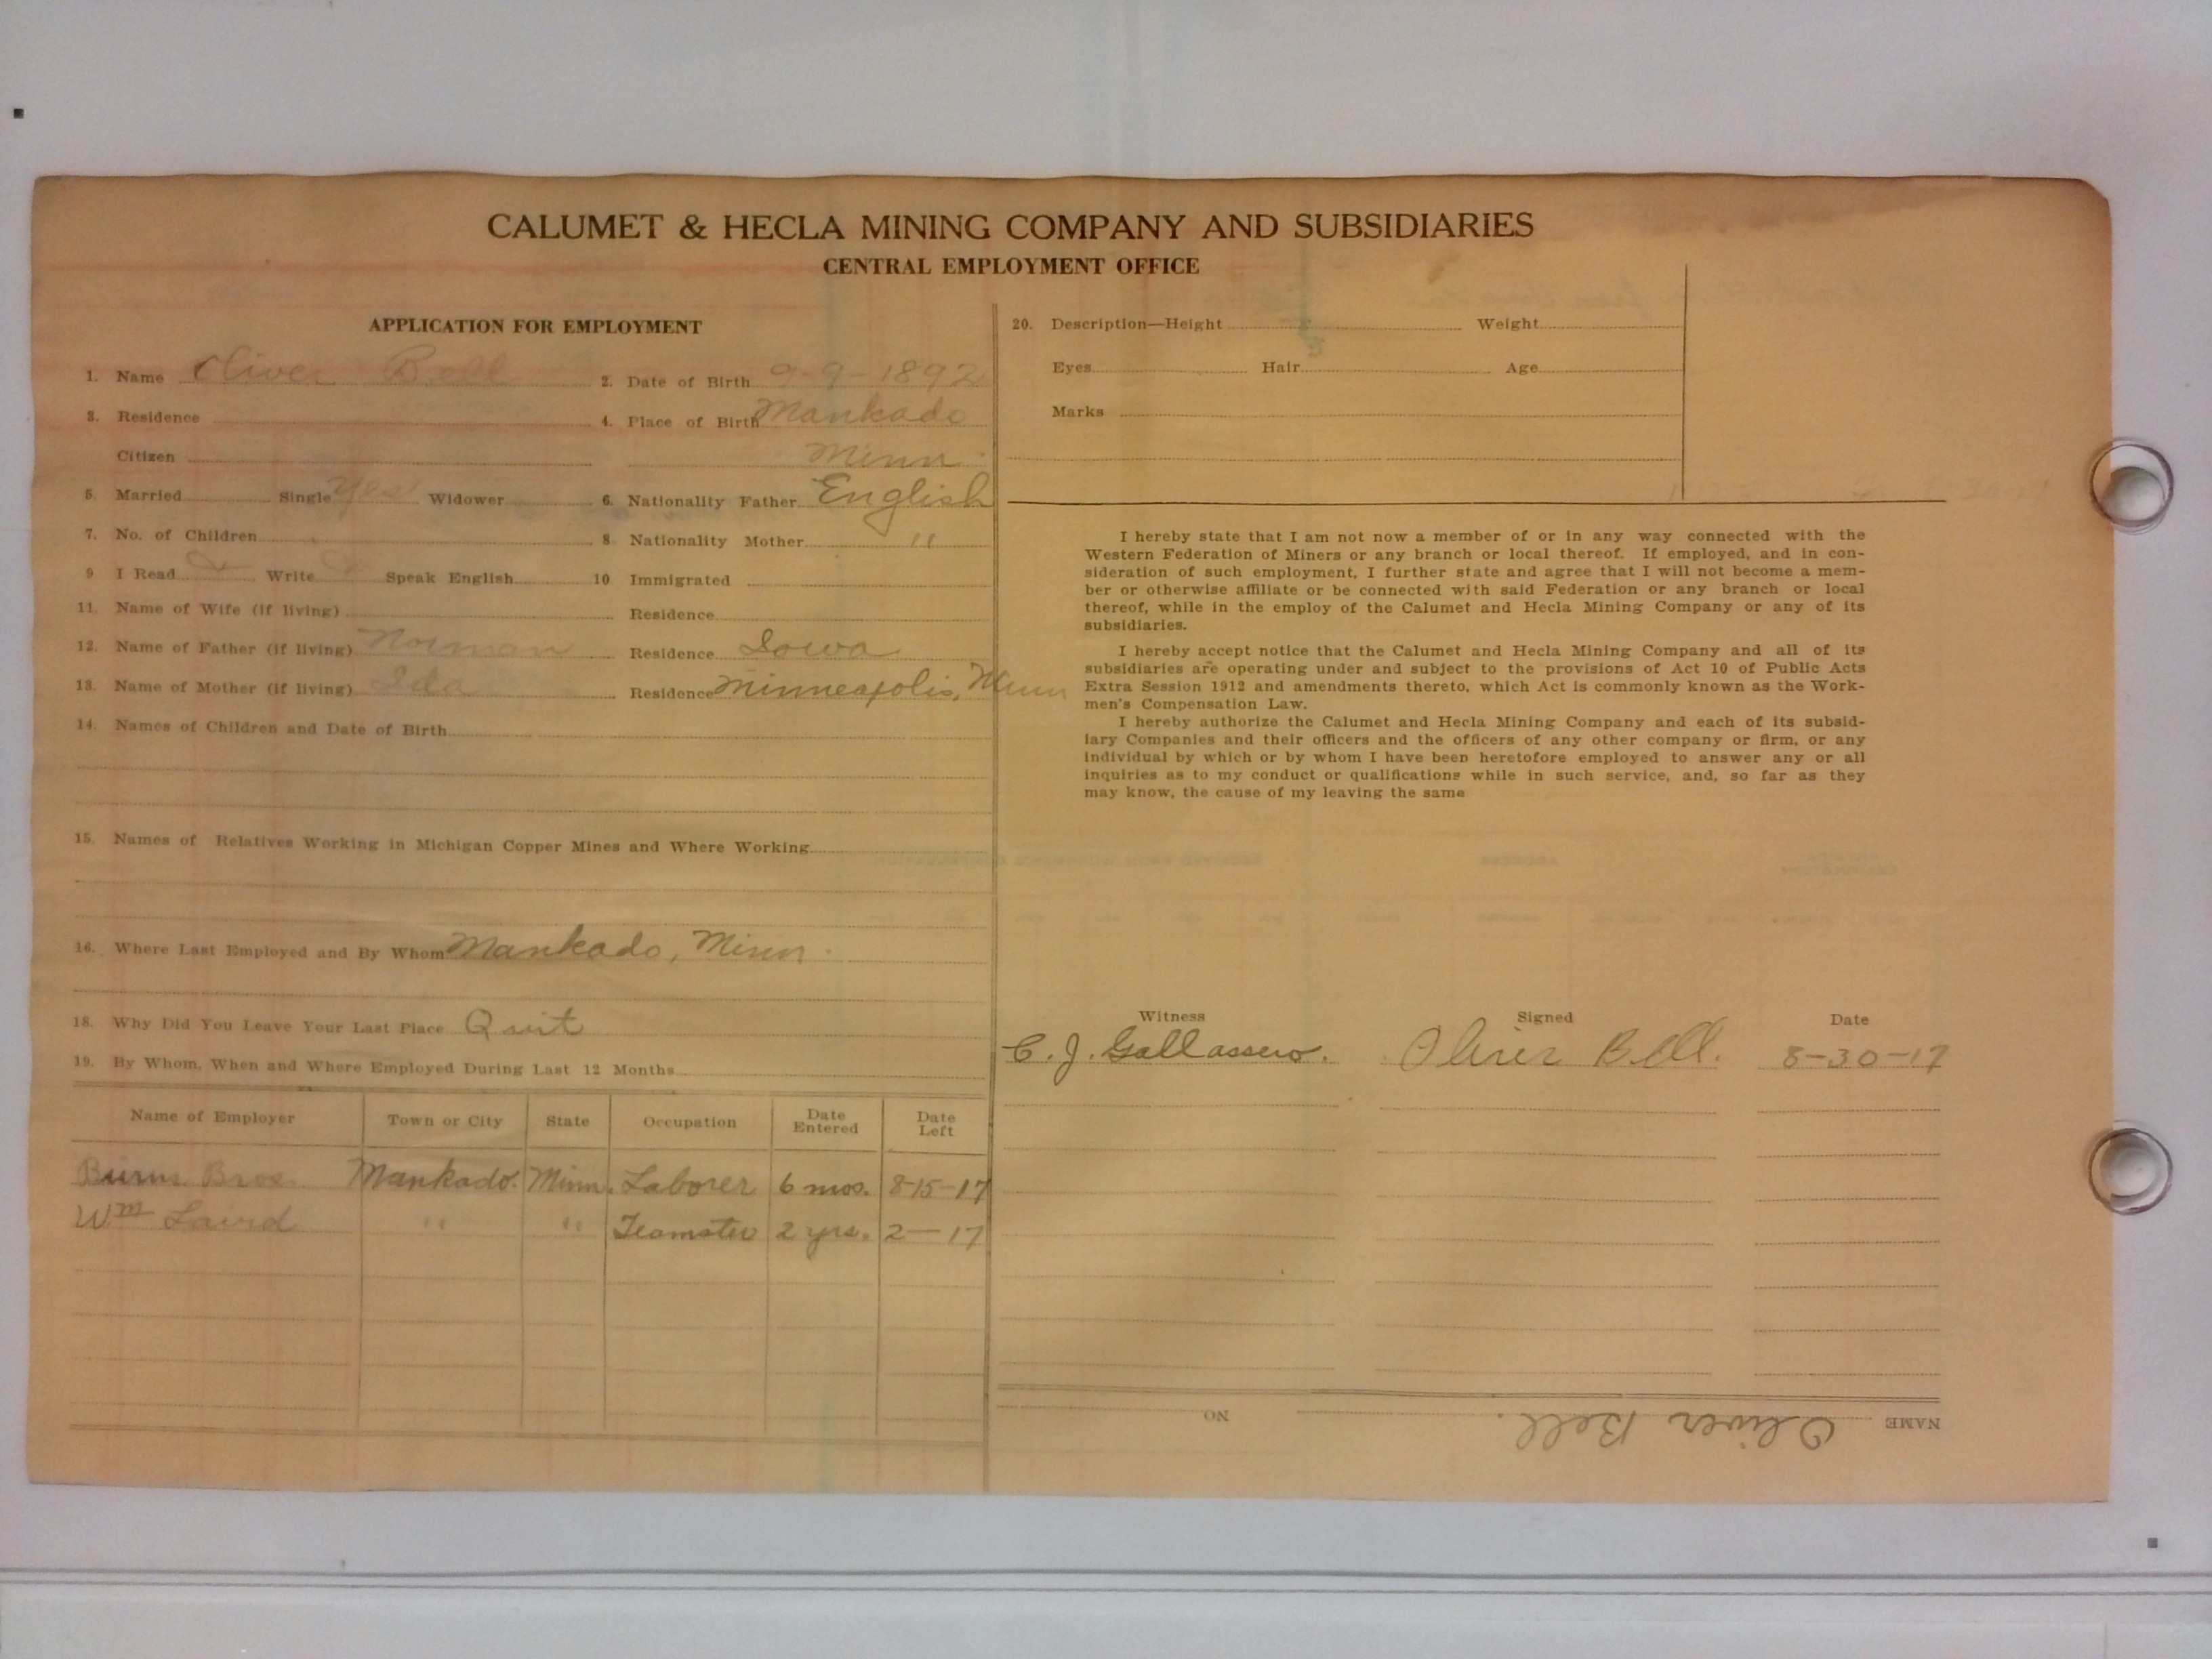 CALUMET & HECLA MINING COMPANY AND SUBSIDIARIES
CENTRAL EMPLOYMENT OFFICE
APPLICATION FOR EMPLOYMENT
1. Name Oliver Bell 2. Date of Birth 9-9-1892
3. Residence 4. Place of Birth Mankado
Citizen Minn.
5. Married Single Yes Widower 6. Nationality Father English
7. No. of Children 8 Nationality Mother "
9 I Read Write Speak English 10 Immigrated
11. Name of Wife (if living) Residence
12. Name of Father (if living) Norman Residence Iowa
13. Name of Mother (if living) Ida Residence Minneapolis, Minn
14. Names of Children and Date of Birth
15. Names of Relatives Working in Michigan Copper Mines and Where Working
16. Where Last Employed and By Whom Mankado, Minn.
18. Why Did You Leave Your Last Place Quit
19. By Whom, When and Where Employed During Last 12 Months
Name of Employer Town or City State Occupation Date Entered Date Left
Burns Bros. Mankado. Minn. Laborer 6 mos. 8-15-17
Wm Laird " " Teamster 2 yrs. 2-17
20. Description—Height Weight
Eyes Hair Age
Marks
I hereby state that I am not now a member of or in any way connected with the
Western Federation of Miners or any branch or local thereof. If employed, and in con-
sideration of such employment, I further state and agree that I will not become a mem-
ber or otherwise affiliate or be connected with said Federation or any branch or local
thereof, while in the employ of the Calumet and Hecla Mining Company or any of its
subsidiaries.
I hereby accept notice that the Calumet and Hecla Mining Company and all of its
subsidiaries are operating under and subject to the provisions of Act 10 of Public Acts
Extra Session 1912 and amendments thereto, which Act is commonly known as the Work-
men's Compensation Law.
I hereby authorize the Calumet and Hecla Mining Company and each of its subsid-
iary Companies and their officers and the officers of any other company or firm, or any
individual by which or by whom I have been heretofore employed to answer any or all
inquiries as to my conduct or qualifications while in such service, and, so far as they
may know, the cause of my leaving the same
Witness Signed Date
C. J. Gallassero. Oliver Bell. 8-30-17
NAME Oliver Bell. NO